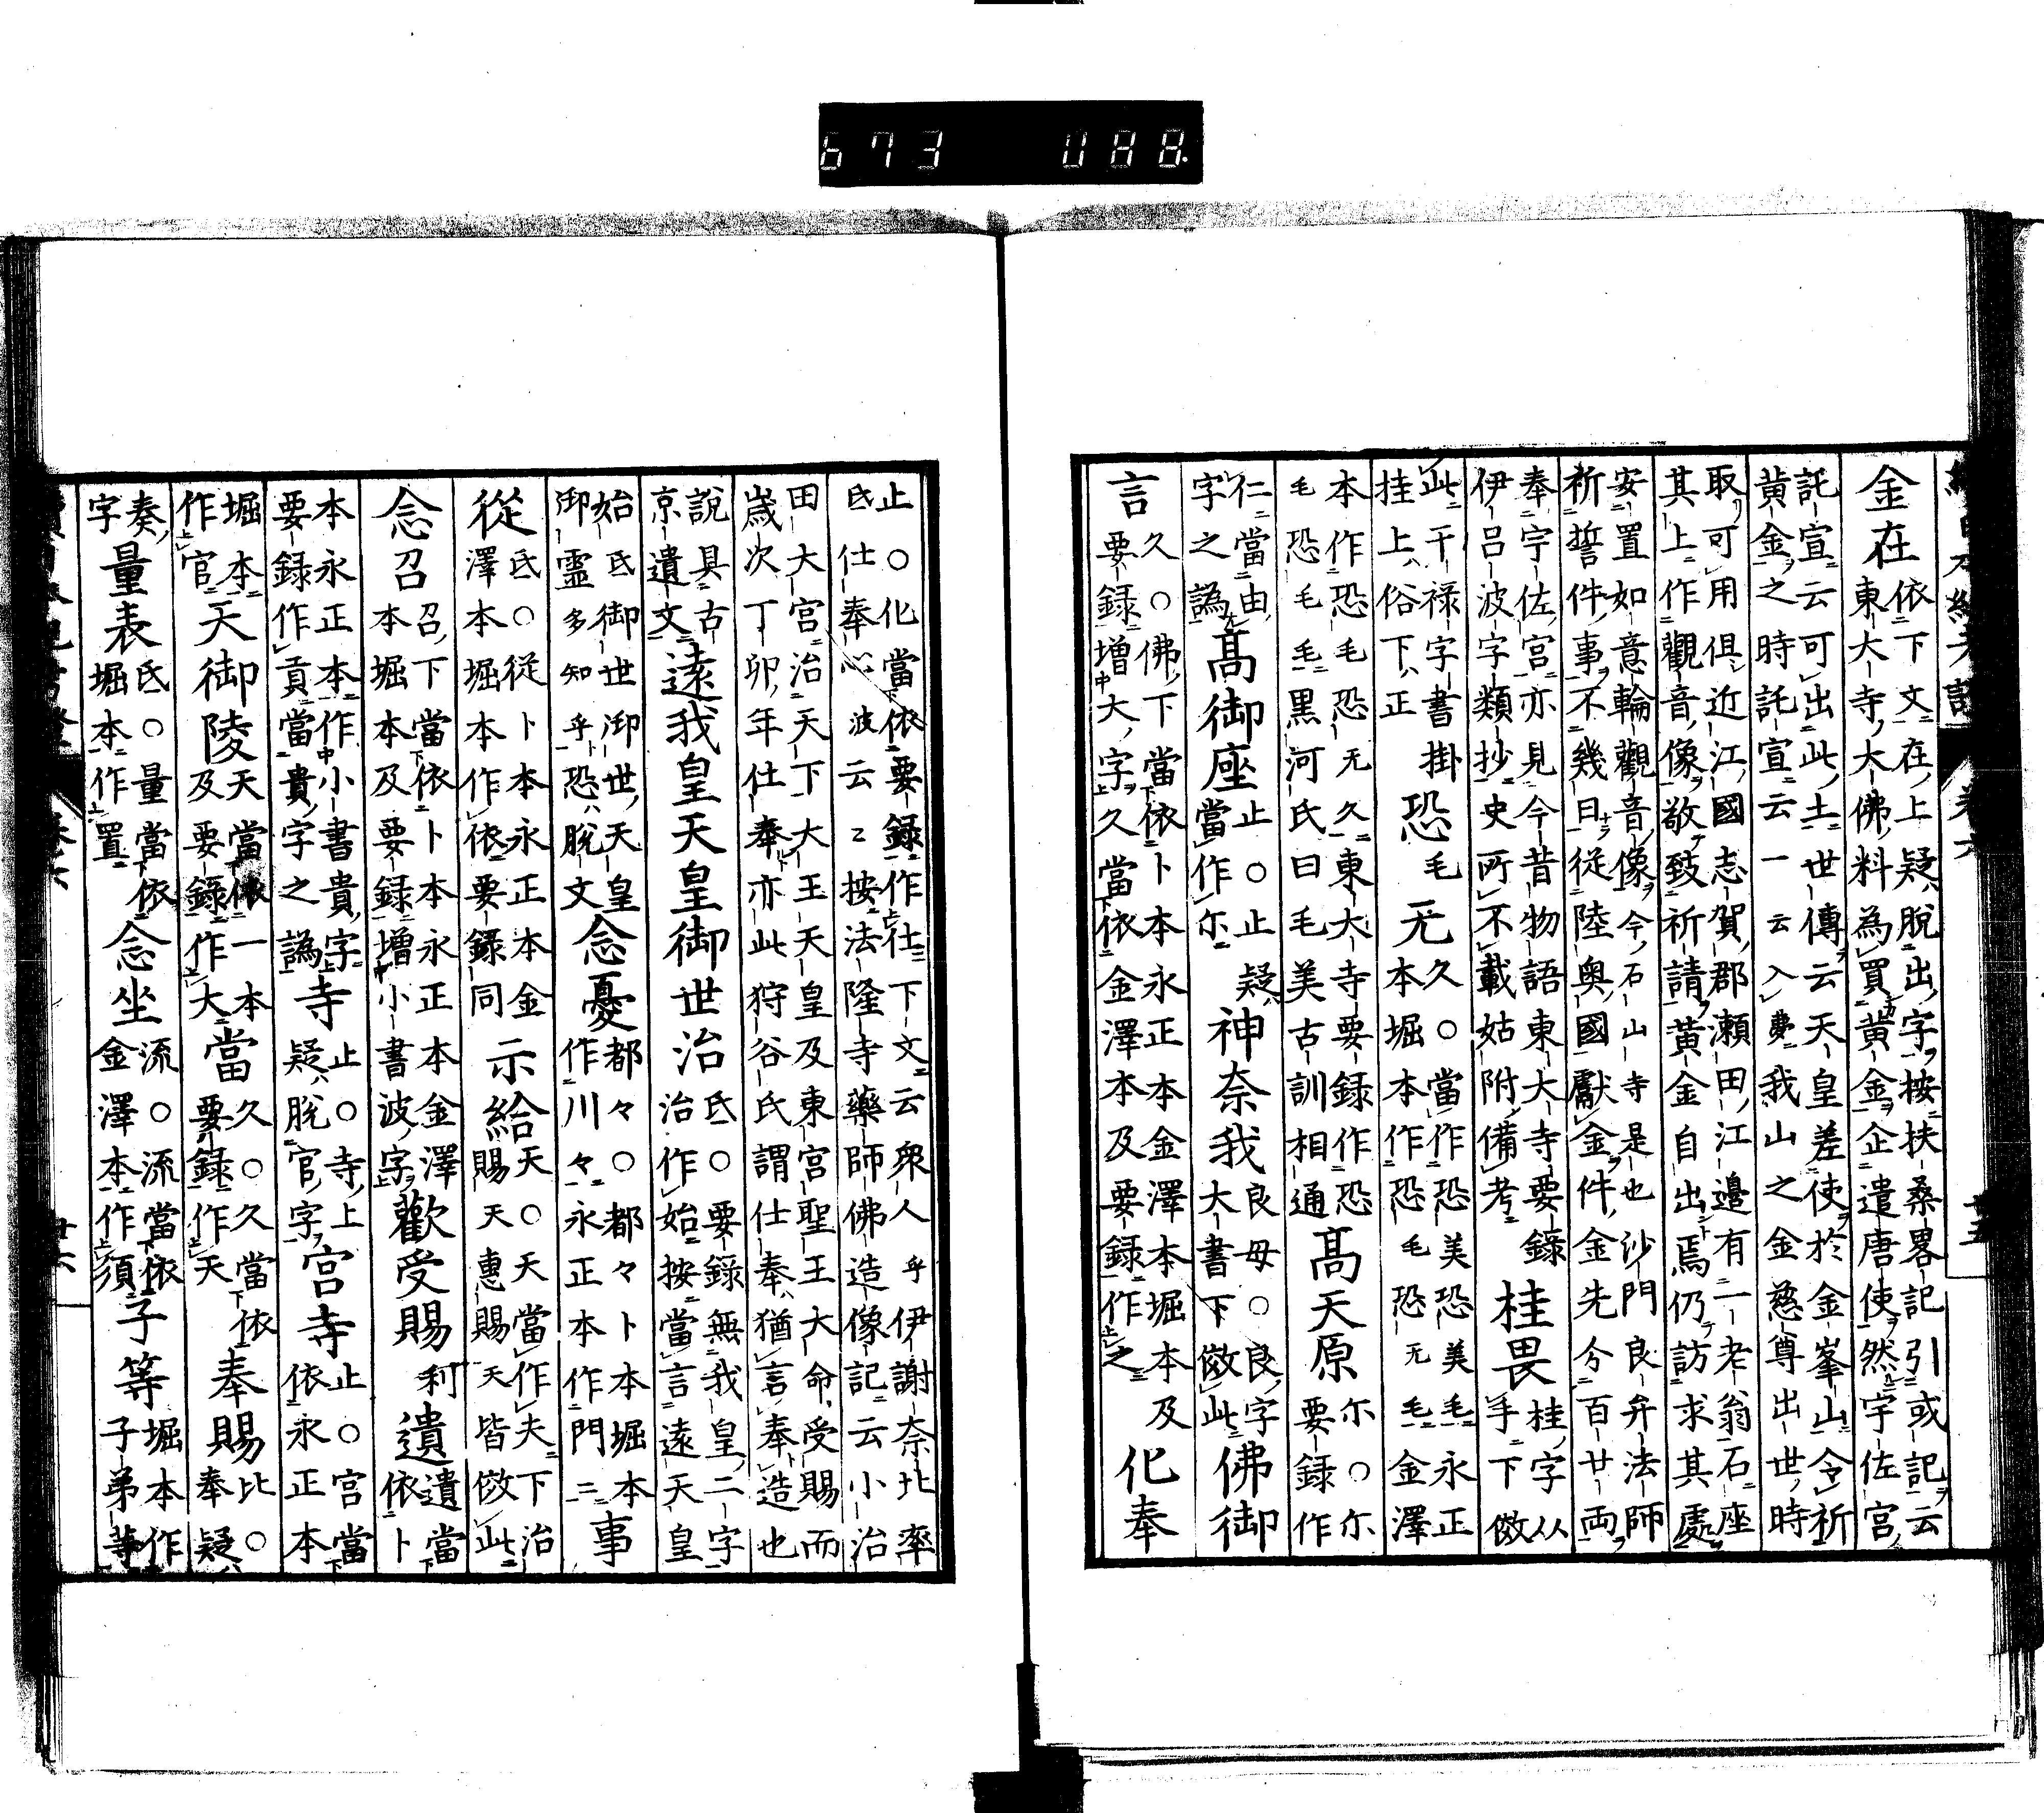 金在
依下文在上疑脱出字按扶桑畧記引或記云
東大寺大佛料為買黃金企遣唐使然宇佐宮
託宣云可出此土世傳云天皇差使於金峯山令祈
黃金之時託宣云一云入夢我山之金慈尊出世時
取可用俱近江國志賀郡瀬田江邊有一老翁石座
其上作觀音像敬致祈請黃金自出焉仍訪求其處
安置如意輪觀音像今石山寺是也沙門良弁法師
祈誓件事不幾日従陸奥國獻金件金先分百廿両
奉宇佐宮亦見今昔物語東大寺要錄
伊呂波字類抄史所不載姑附備考
桂畏
桂字从
手下傚
此干禄字書掛
挂上俗下正
恐毛无
久○當作恐美恐美毛永正
本堀本作恐毛恐无毛金澤
本作恐毛恐无久東大寺要録作恐
毛恐毛毛黒河氏曰毛美古訓相通
高天原
尓○尓
要録作
仁當由
字之譌
高御座
止○止疑
當作尓
神奈我
良母○良字
大書下傚此
佛御
言
久○佛下當依卜本永正本金澤本堀本及
要録增大字久當依金澤本及要録作之
化奉
止○化當依要録作仕下文云衆人乎伊謝奈比率
氐仕奉心波云云按法隆寺藥師佛造像記云小治
田大宮治天下大王天皇及東宮聖王大命受賜而
歳次丁卯年仕奉亦此狩谷氏謂仕奉猶言奉造也
說具古
京遺文
遠我皇天皇御世治
氐○要録無我皇二字
治作始按當言遠天皇
始氐御世御世天皇
御霊多知乎恐脱文
念憂
都々○都々卜本堀本
作川々永正本作門二
事
從
氐○從卜本永正本金
澤本堀本作依要録同
示給
天○天當作夫下治
賜天惠賜天皆傚此
念召
召下當依卜本永正本金澤
本堀本及要録增小書波字
歡受賜
利
遺
遺當
依卜
本永正本作小書貴字
要録作貢當貴字之譌
寺
止○寺上
疑脱官字
宮寺
止○宮當
依永正本
堀本
作官
天御陵
天當依一本
及要録作大
當
久○久當依
要録作天
奉賜
比○
奉疑
奏
字
量表
氐○量當依
堀本作置
念坐
流○流當依
金澤本作須
子等
堀本作
子弟等